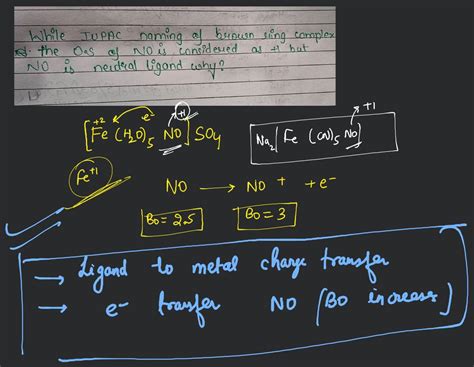 While IUPAC naming of brown ring complex
the O.S of NO is considered as +1 but
NO is neutral ligand why?
+2 e⁻ +1
[Fe (H₂O)₅ NO] SO₄
+1
Na₂[Fe (CN)₅ NO]
Fe⁺¹
NO ⟶ NO⁺ + e⁻
BO = 2.5 BO = 3
→ Ligand to metal charge transfer
→ e⁻ transfer NO (BO increases)